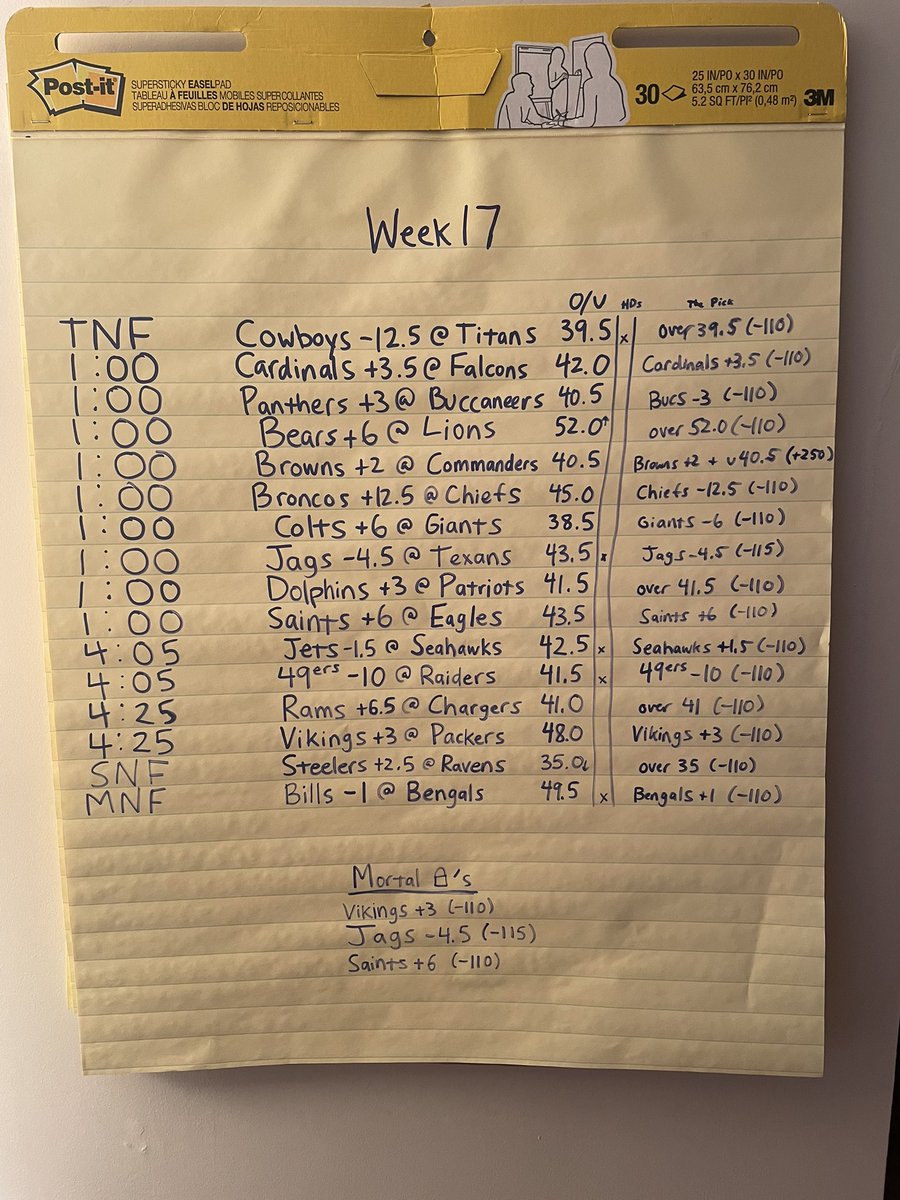 Post-it
SUPERSTICKY EASELPAD
TABLEAU À FEUILLES MOBILES SUPER COLLANTES
SUPERADHESIVAS BLOC DE HOJAS REPOSICIONABLES
30
25 IN/PO x 30 IN/PO
63,5 cm x 76,2 cm
5.2 SQ FT/PI² (0,48 m²)
3M
Week 17
O/U HDs The Pick
TNF Cowboys -12.5 @ Titans 39.5 x over 39.5 (-110)
1:00 Cardinals +3.5 @ Falcons 42.0 Cardinals +3.5 (-110)
1:00 Panthers +3 @ Buccaneers 40.5 Bucs -3 (-110)
1:00 Bears +6 @ Lions 52.0↑ over 52.0 (-110)
1:00 Browns +2 @ Commanders 40.5 Browns +2 + u40.5 (+250)
1:00 Broncos +12.5 @ Chiefs 45.0 Chiefs -12.5 (-110)
1:00 Colts +6 @ Giants 38.5 Giants -6 (-110)
1:00 Jags -4.5 @ Texans 43.5 x Jags -4.5 (-115)
1:00 Dolphins +3 @ Patriots 41.5 over 41.5 (-110)
1:00 Saints +6 @ Eagles 43.5 Saints +6 (-110)
4:05 Jets -1.5 @ Seahawks 42.5 x Seahawks +1.5 (-110)
4:05 49ers -10 @ Raiders 41.5 x 49ers -10 (-110)
4:25 Rams +6.5 @ Chargers 41.0 over 41 (-110)
4:25 Vikings +3 @ Packers 48.0 Vikings +3 (-110)
SNF Steelers +2.5 @ Ravens 35.0↓ over 35 (-110)
MNF Bills -1 @ Bengals 49.5 x Bengals +1 (-110)
Mortal 🔒's
Vikings +3 (-110)
Jags -4.5 (-115)
Saints +6 (-110)